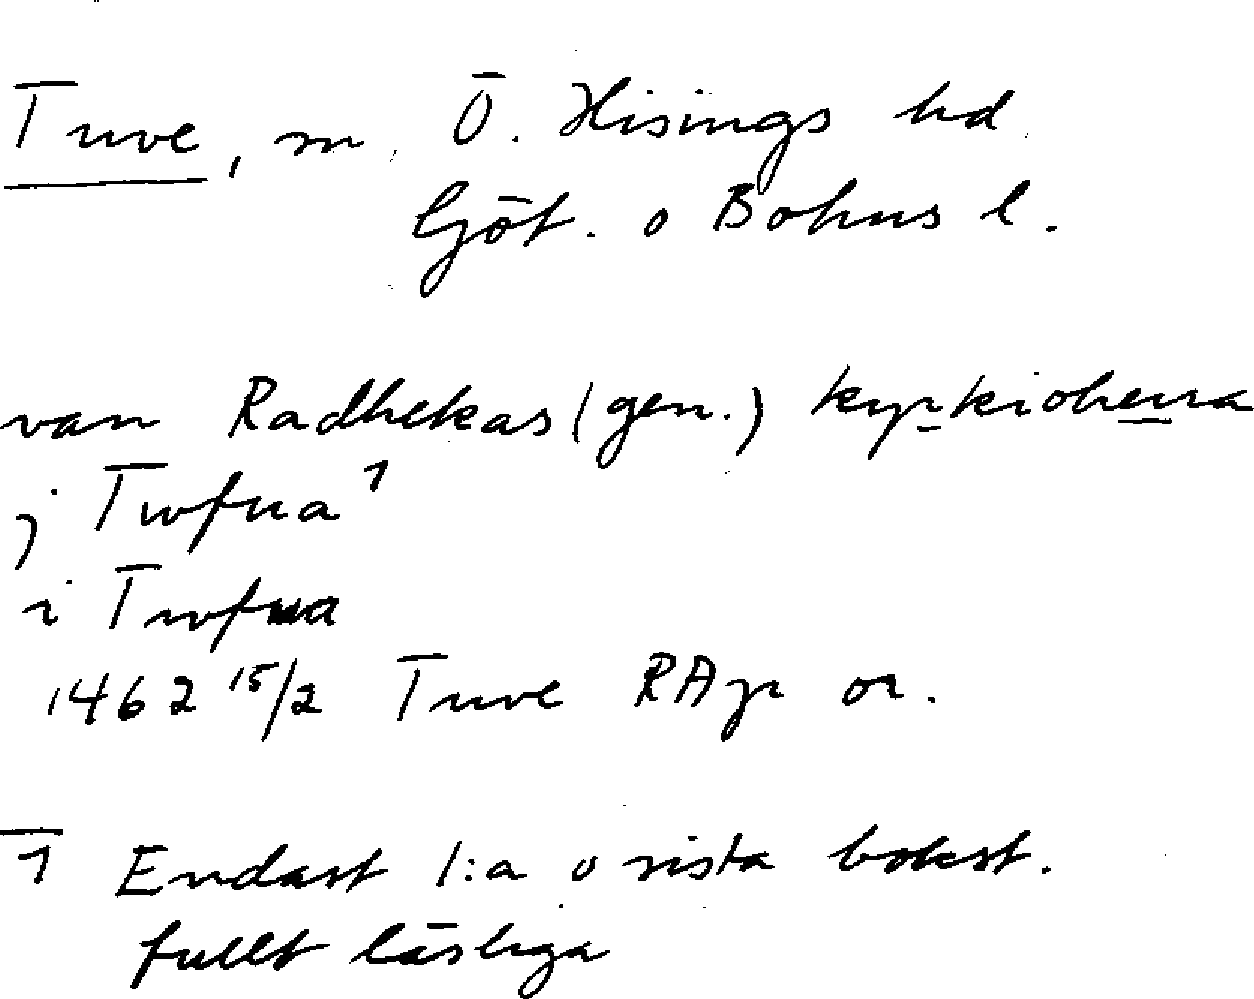 Tuve, sn, Ö. Hisings hd
Göt. o Bohus l.
van Radhekas (gen.) kyrkioherra
j Twfua 1
i Twfua
1462 15/2 Tuve RAp or.
1 Endast 1:a o sista bokst.
fullt läsliga